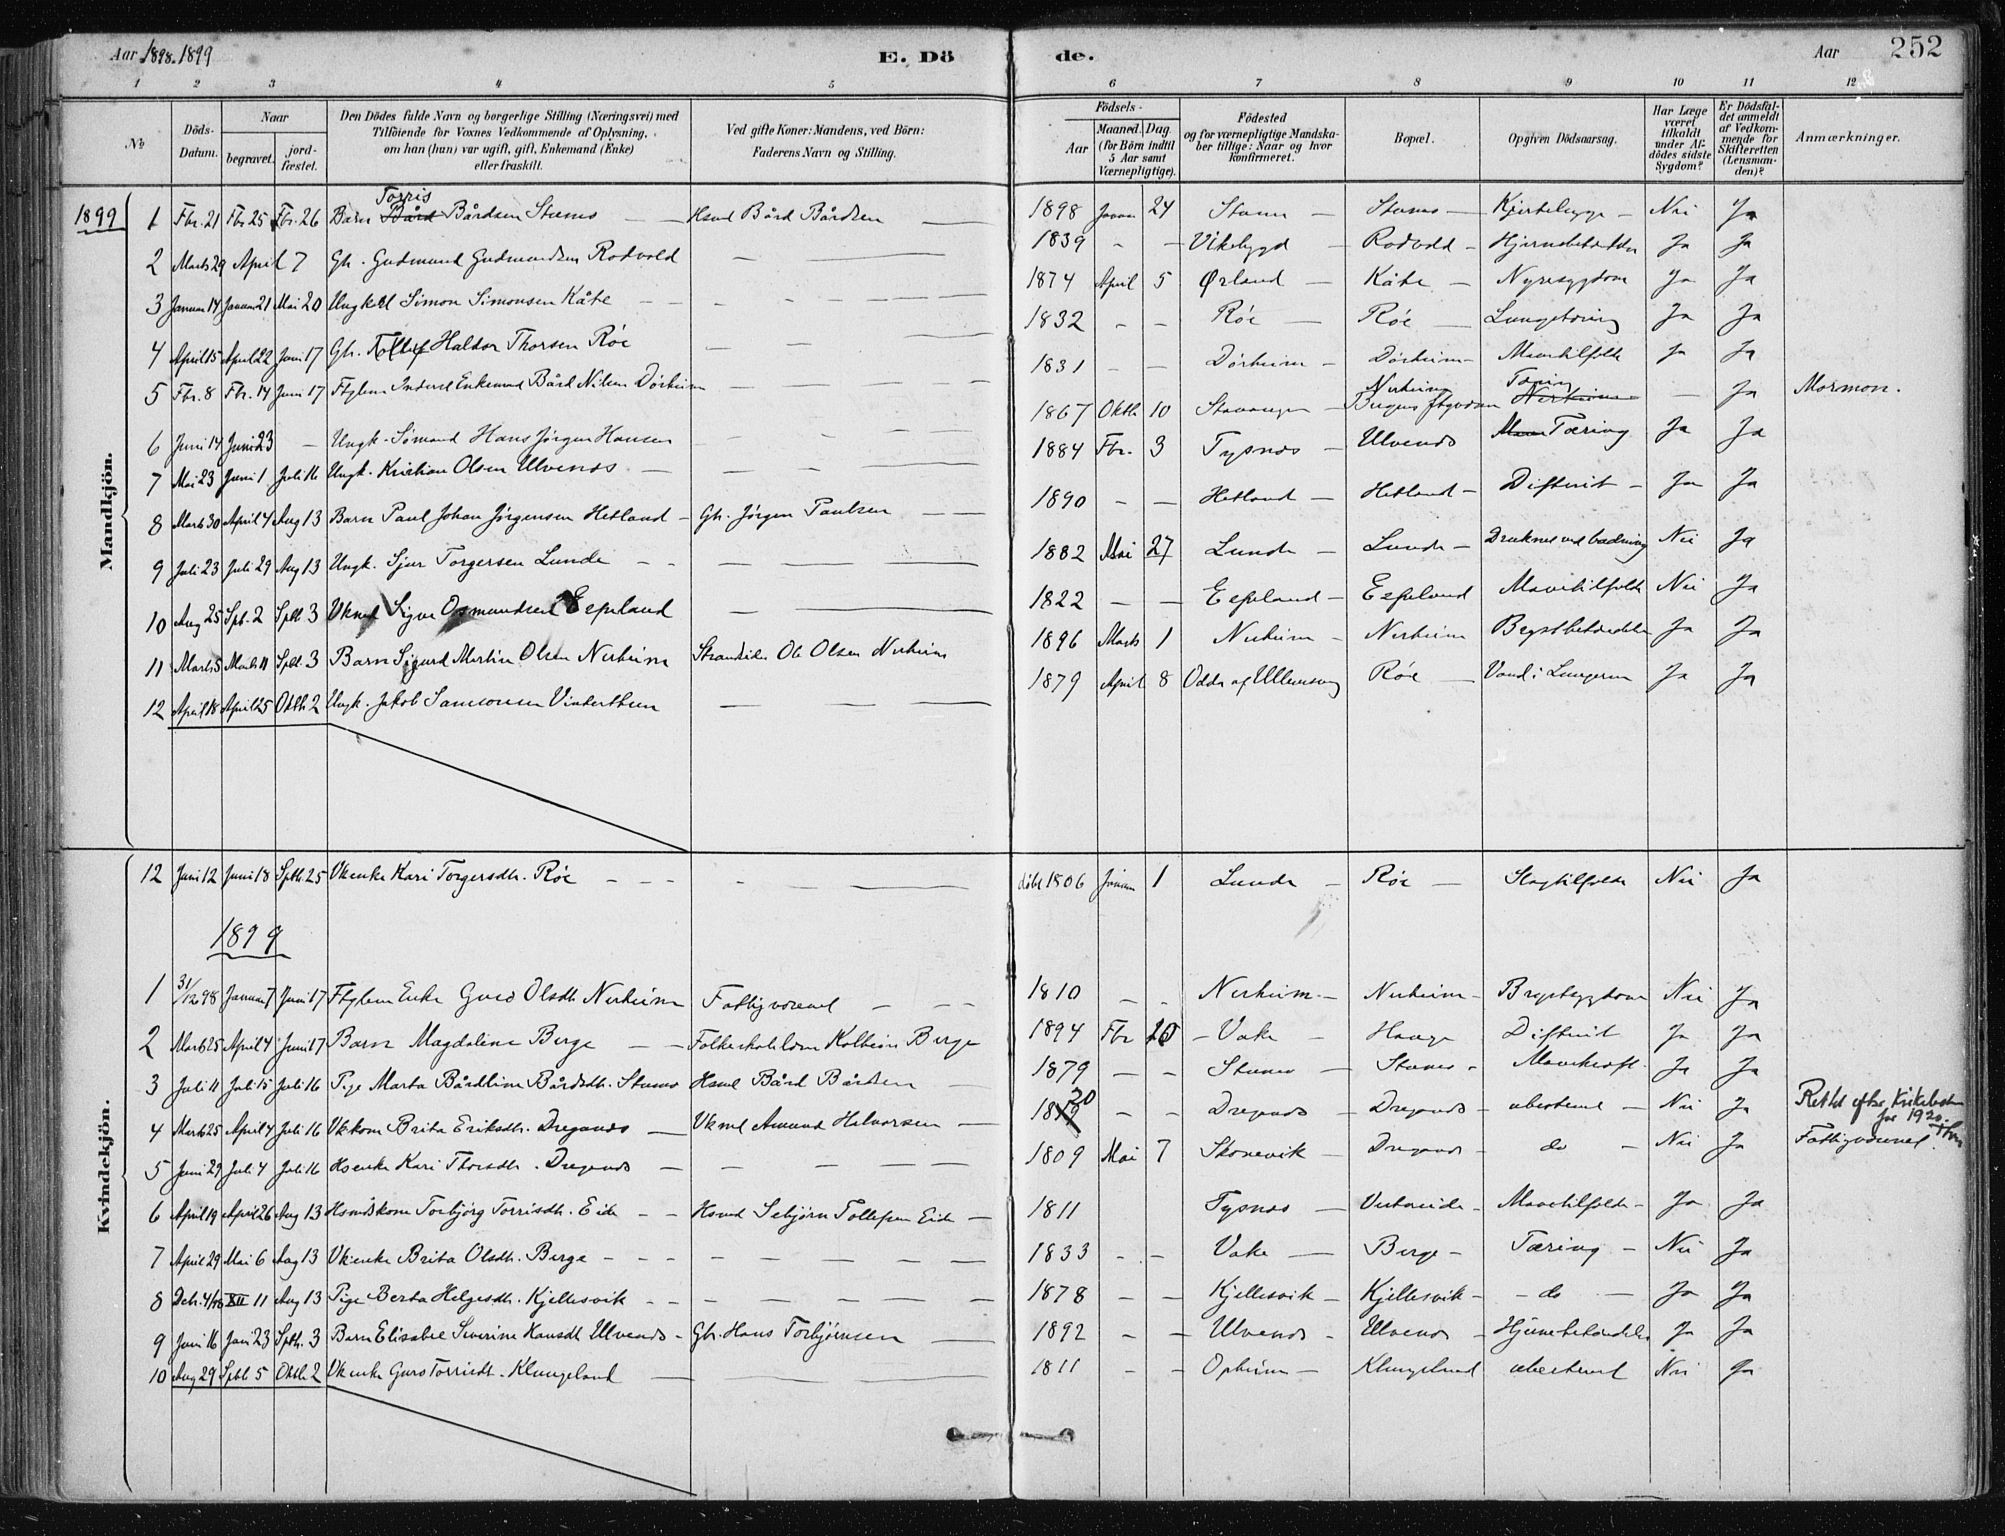 Aar 1898. 1899 E. Dö de. Aar 252
1 2 3 4 5 6 7 8 9 10 11 12
№ Döds-Datum. Naar begravet. jordfæstet. Den Dödes fulde Navn og borgerlige Stilling (Næringsvei) med Tilföiende for Voxnes Vedkommende af Oplysning, om han (hun) var ugift, gift, Enkemand (Enke) eller fraskilt. Ved gifte Koner: Mandens, ved Börn: Faderens Navn og Stilling. Födsels- Aar Maaned. Dag. (for Börn indtil 5 Aar samt Værnepligtige). Födested og for værnepligtige Mandskaber tillige: Naar og hvor konfirmeret. Bopæl. Opgiven Dödsaarsag. Har Læge været tilkaldt under Afdödes sidste Sygdom? Er Dödsfaldet anmeldt af Vedkommende for Skifteretten (Lensmanden)? Anmærkninger.
Mandkjön.
1899 1 Fbr. 21 Fbr. 25 Fbr. 26 Barn Bård Torris Bårdsen Stumo Hsmd Bård Bårdsen 1898 Januar 24 Stumo Nei Ja
2 Marts 29 April 7 Gb. Gudmund Gudmundsen Rodvold 1839 Vikebygd Rodvold Ja Ja
3 Januar 14 Januar 21 Mai 20 Ungkarl Simon Simonsen Kåte 1874 April 5 Ørland Kåte Nyresygdom Ja Ja
4 April 15 April 22 Juni 17 Gb. Haldor Thorsen Röe 1832 Röe Röe Lungetæring Ja Ja
5 Fbr. 8 Fbr. 14 Juni 17 Enkemand Bård Nilsen Dörheim 1831 Dörheim Dörheim Mavetilfelde Ja Ja
6 Juni 14 Juni 23 Ungk. Sömand Hans Jörgen Hansen 1867 Oktb 10 Stavanger Nerheim Tæring Ja Mormon.
7 Mai 23 Juni 1. Juli 16 Ungk. Kristian Olsen Ulvenos 1884 Fbr. 3 Tysnes Ulvenos Tæring Ja Ja
8 Marts 30 April 4 Aug 13 Barn Paul Johan Jörgensen Hetland Gb. Jörgen Paulsen 1890 Hetland Hetland Difterit Ja Ja
9 Juli 23 Juli 29 Aug 13 Ungk. Sjur Torgersen Lunde 1882 Mai 27 Lunde Lunde Druknet ved badning Nei Ja
10 Aug 25 Spt. 2 Sptb 3 Vkmd Sigve Osmundsen Espeland 1822 Espeland Espeland Mavetilfelde Nei Ja
11 Marts 5 Marts 11 Sptb. 3 Barn Sigurd Martin Olsen Nerheim Strandsider Ole Olsen Nerheim 1896 Marts 1 Nerheim Nerheim Brystbetændelse Ja Ja
12 April 18 April 25 Oktb 2 Ungk. Jakob Samsonsen Vintertun 1879 April 8 Odde af Ullensvang Röe Vand i Lungerne Ja Ja
Kvindekjön.
12 Juni 12 Juni 18 Sptb. 25 Vkenke Kari Torgersdtr. Röe döbt 1806 Januar 1 Lunde Röe Slagtilfelde Nei Ja
1899
1 31/12 98 Januar 7 Juni 17 Enke Guro Olsdtr Nerheim Fattigvæsenet 1810 Nerheim Nerheim Brystsygdom Nei Ja
2 Marts 25 April 4 Juni 17 Barn Magdalina Berge Kolbein Berge 1894 Fbr 20 Vake Hauge Difterit Ja Ja
3 Juli 11 Juli 15 Juli 16 Pige Marta Bårdline Bårdsdtr. Stumo Hsmd Bård Bårdsen 1879 Stumo Stumo Mavekræft Ja Ja
4 Marts 25 April 4 Juli 16 Vkkone Brita Eriksdtr. Dreganes Vkmd Amund Halvorsen 1820 Dreganes Dreganes ubestemt Nei Ja Rettet efter Kirkeboken for 1920.
5 Juni 29 Juli 4 Juli 16 Hsenke Kari Thorsdtr. Dreganes 1809 Mai 7 Skonevik Dreganes do Nei Ja Fattigvæsenet
6 April 19 April 26 Aug 13 Hsmdskone Torbjörg Torrisdtr. Eide Hsmd Sebjörn Tollefsen Eide 1811 Tysnes Mavetilfelde Ja Ja
7 April 29 Mai 6 Aug 13 Vkenke Brita Olsdtr. Berge 1833 Vake Berge Tæring Nei Ja
8 Dcb. 4/98 XII 11 Aug 13 Pige Berta Helgesdtr. Kjellesvik 1878 Kjellesvik Kjellesvik do Ja Ja
9 Juni 16 Juni 23 Sptb. 3 Barn Elisabet Severine Hansdtr Ulvenos Gb. Hans Torbjörnsen 1892 Ulvenos Ulvenos Hjernebetændelse Ja Ja
10 Aug 29 Sptb 5 Oktb 2 Vkenke Guro Torrisdtr. Klungeland 1811 Opheim Klungeland ubestemt Nei Ja